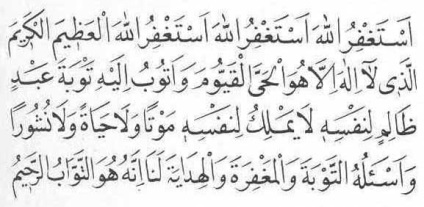 اَسْتَغْفِرُ اللهَ اَسْتَغْفِرُ اللهَ اَسْتَغْفِرُ اللهَ الْعَظِيمَ الْكَرِيمَ
الَّذِى لَآ اِلٰهَ اِلَّا هُوَ الْحَىَّ الْقَيُّومَ وَاَتُوبُ اِلَيْهِ تَوْبَةَ عَبْدٍ
ظَالِمٍ لِنَفْسِهِ لَا يَمْلِكُ لِنَفْسِهِ مَوْتًا وَلَا حَيَاةً وَلَا نُشُورًا
وَاَسْئَلُهُ التَّوْبَةَ وَالْمَغْفِرَةَ وَالْهِدَايَةَ لَنَا اِنَّهُ هُوَ التَّوَّابُ الرَّحِيمُ